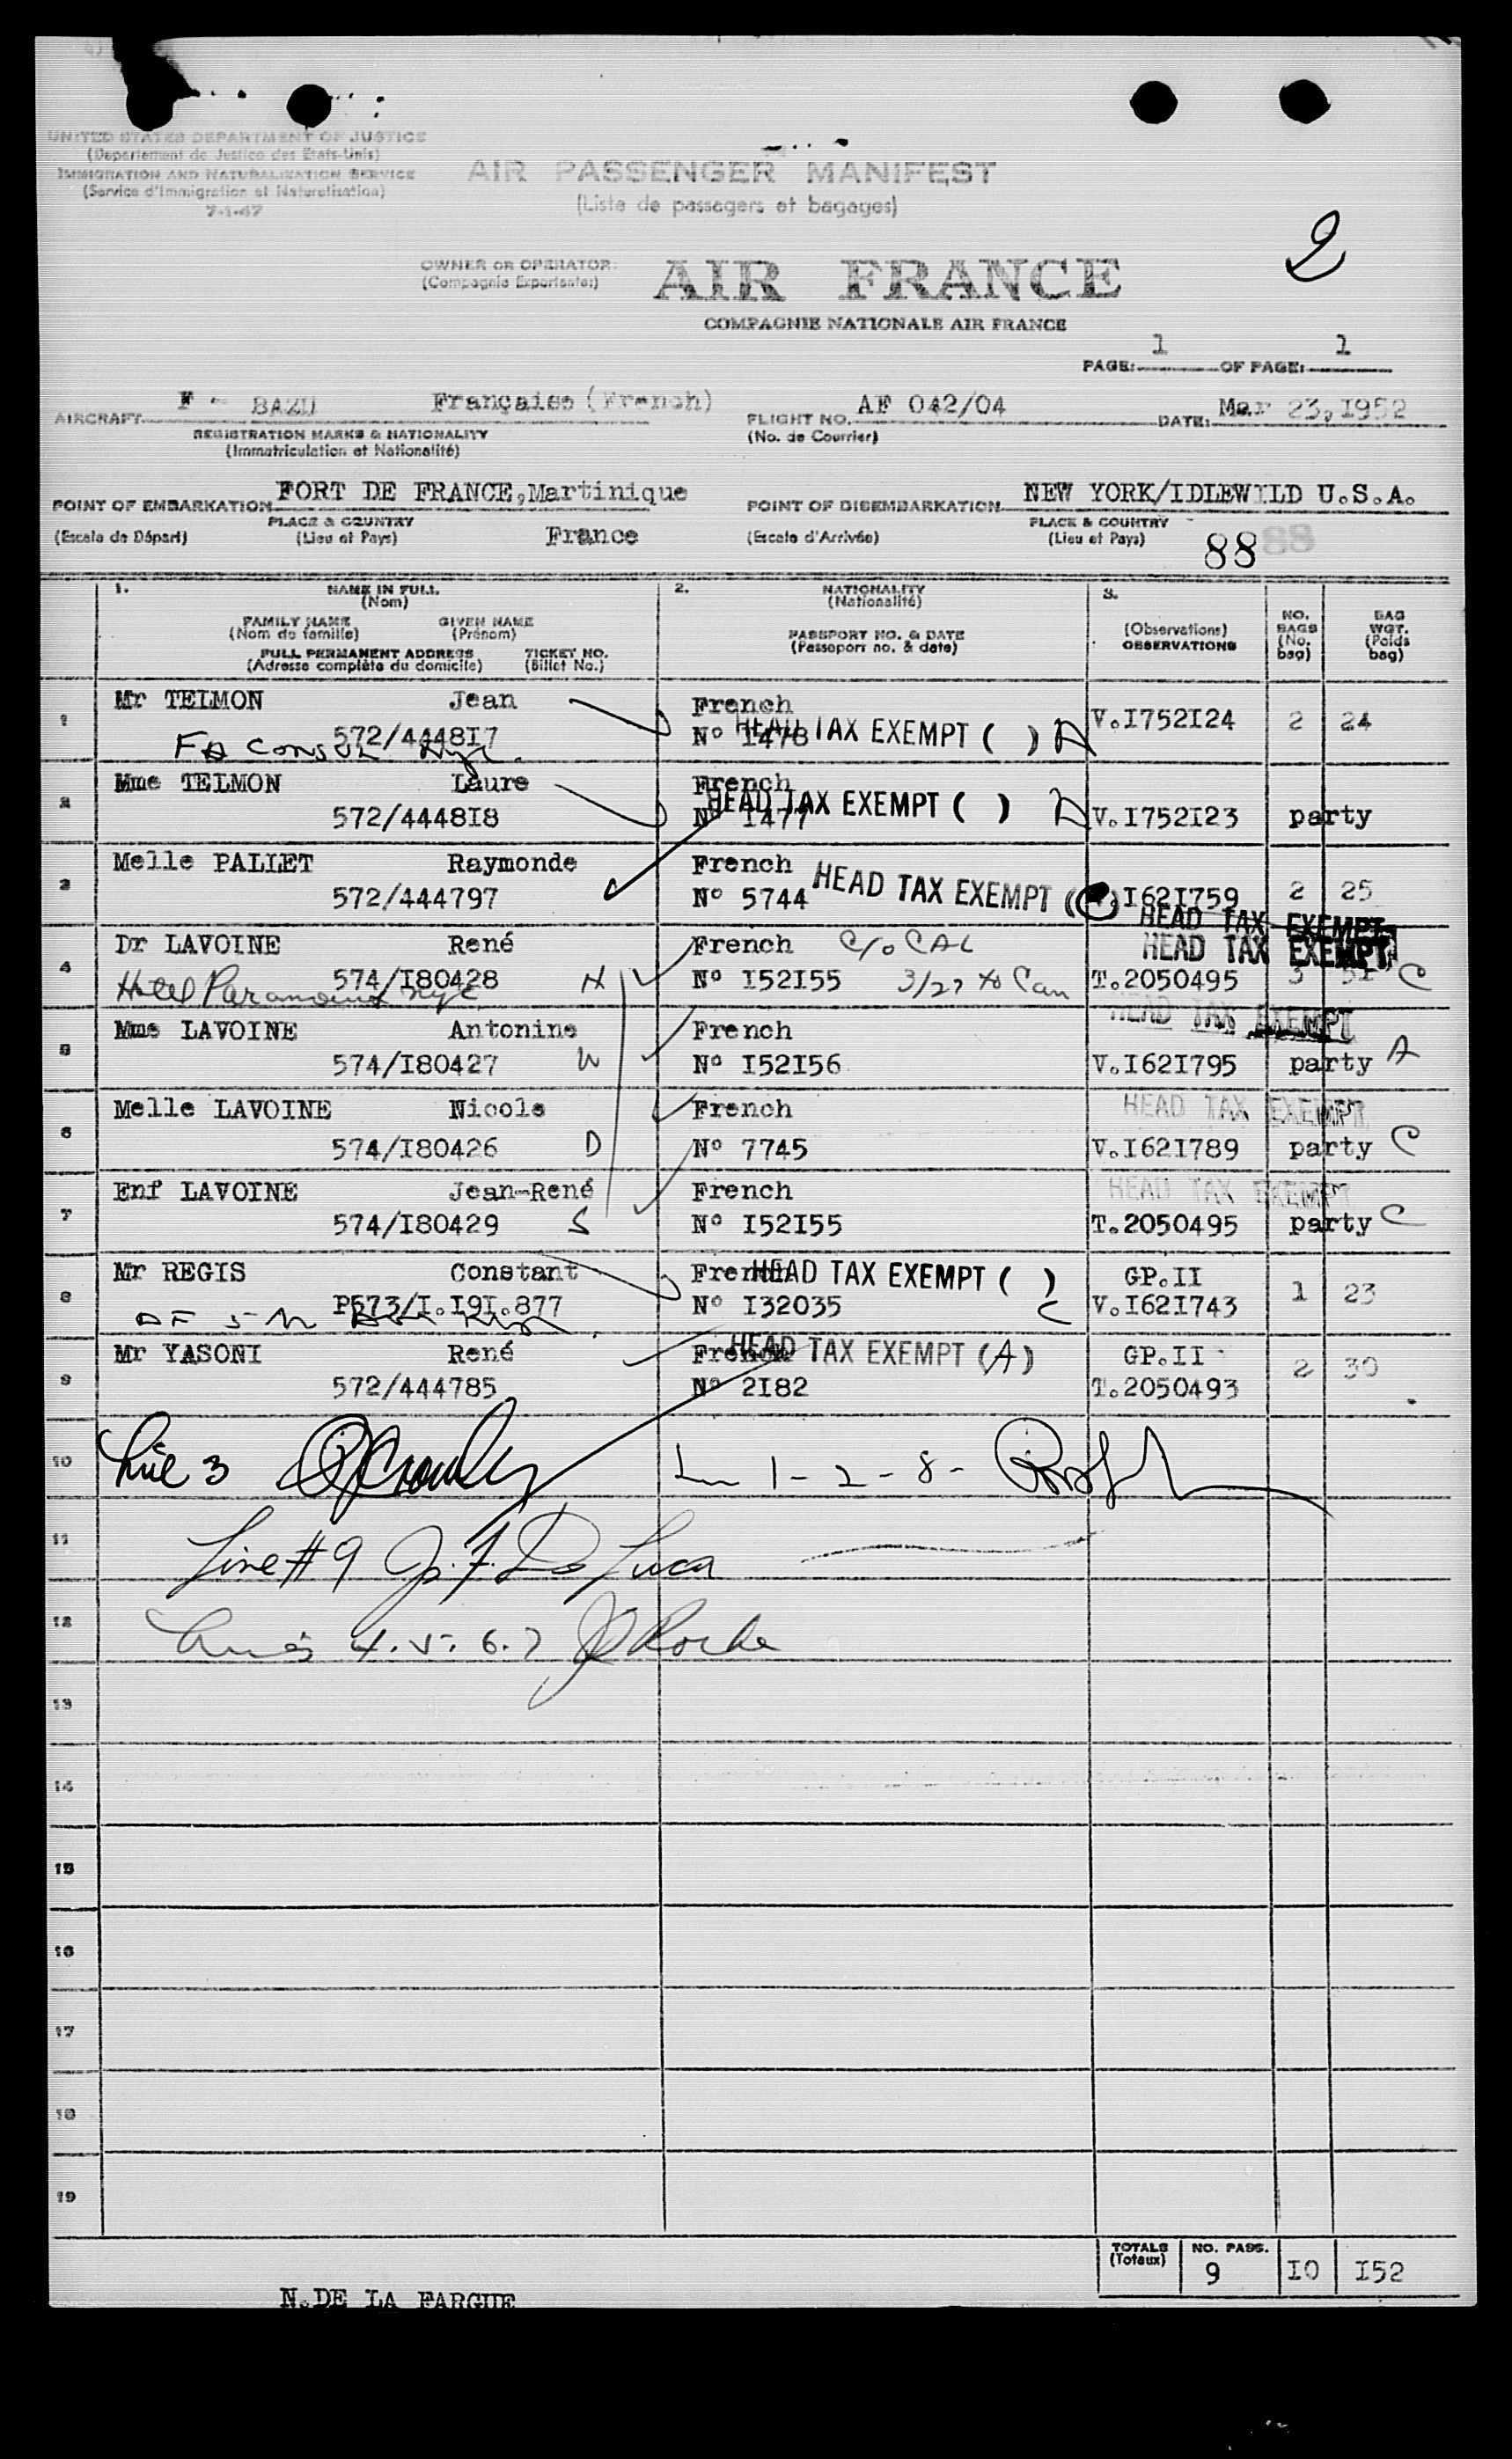 UNITED STATES DEPARTMENT OF JUSTICE
(Departement de Justice des Etats-Unis)
IMMIGRATION AND NATURALIZATION SERVICE
(Service d'Immigration et Naturalisation)
7-1-47
AIR PASSENGER MANIFEST
(Liste de passagers et bagages)
2
OWNER OR OPERATOR:
(Compagnie Exportante:)
AIR FRANCE
COMPAGNIE NATIONALE AIR FRANCE
PAGE: 1 OF PAGE: 1
AIRCRAFT F - BAZU Française (French) FLIGHT NO. AF 042/04 DATE: Mar 23,I952
REGISTRATION MARKS & NATIONALITY (No. de Courrier)
(Immatriculation et Nationalité)
POINT OF EMBARKATION FORT DE FRANCE,Martinique POINT OF DISEMBARKATION NEW YORK/IDLEWILD U.S.A.
(Escale de Départ) PLACE & COUNTRY (Lieu et Pays) France (Escale d'Arrivée) PLACE & COUNTRY (Lieu et Pays) 88 88
1. NAME IN FULL 2. NATIONALITY 3. NO. BAGS BAG WGT.
(Nom) (Nationalité) (Observations) (No. bag) (Poids bag)
FAMILY NAME GIVEN NAME PASSPORT NO. & DATE OBSERVATIONS
(Nom de famille) (Prénom) (Passeport no. & date)
FULL PERMANENT ADDRESS TICKET NO.
(Adresse complète du domicile) (Billet No.)
1 Mr TELMON Jean French
572/4448I7 Nº I478 HEAD TAX EXEMPT ( ) A V.I752I24 2 24
FR Consul NYC.
2 Mme TELMON Laure French
572/4448I8 Nº I477 HEAD TAX EXEMPT ( ) A V.I752I23 party
3 Melle PALLET Raymonde French
572/444797 Nº 5744 HEAD TAX EXEMPT ( V.I62I759 2 25
HEAD TAX EXEMPT
HEAD TAX EXEMPT
4 Dr LAVOINE René French C/o CAL
574/I80428 H Nº I52I55 3/27 to Can T.2050495 3 C
Hotel Paramount NYC
HEAD TAX EXEMPT
5 Mme LAVOINE Antonine French
574/I80427 W Nº I52I56 V.I62I795 party A
HEAD TAX EXEMPT
6 Melle LAVOINE Nicole French
574/I80426 D Nº 7745 V.I62I789 party C
HEAD TAX EXEMPT
7 Enf LAVOINE Jean-René French
574/I80429 S Nº I52I55 T.2050495 party C
8 Mr REGIS Constant French HEAD TAX EXEMPT ( ) GP.II
P573/I.I9I.877 Nº I32035 C V.I62I743 1 23
9 Mr YASONI René French HEAD TAX EXEMPT (A) GP.II
572/444785 Nº 2I82 T.2050493 2 30
10 Line 3 1 - 2 - 8 -
11 Line #9 J. F. De Luca
12 Lines 4. 5. 6. 7 Roche
13
14
15
16
17
18
19
TOTALS NO. PASS.
(Totaux) 9 I0 I52
N.DE LA FARGUE